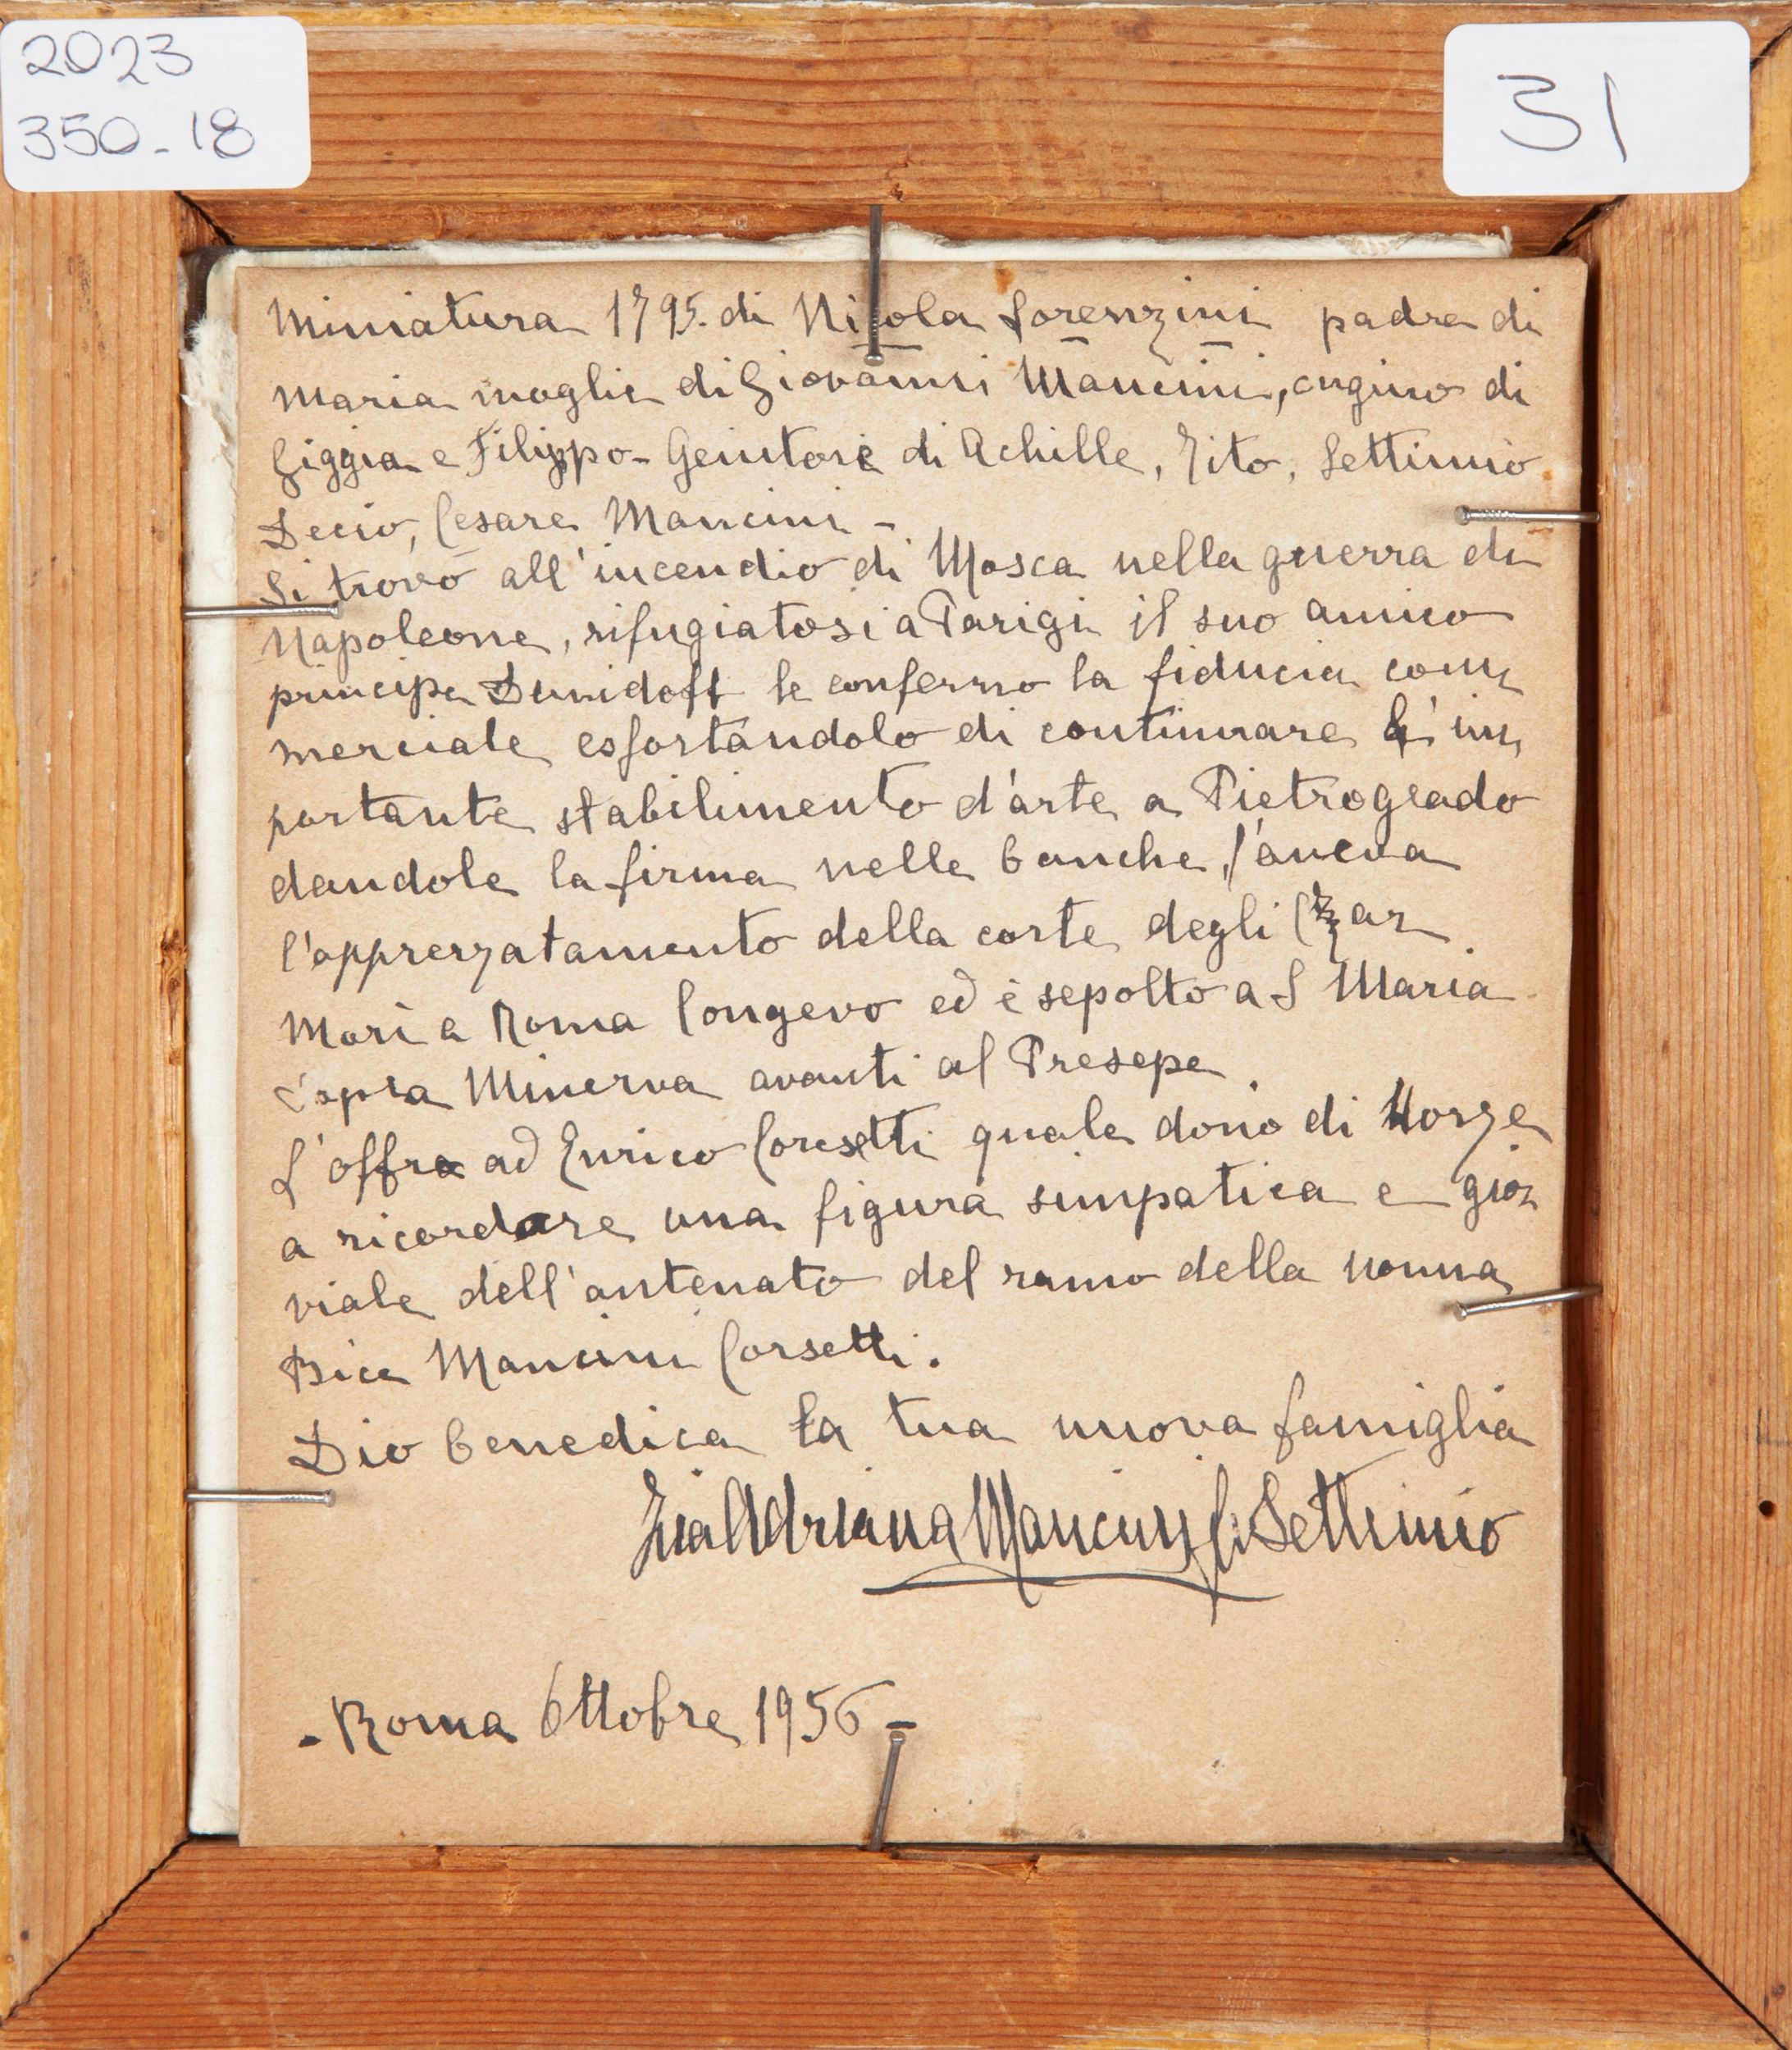 2023
350-18
31
Miniatura 1795. di Nicola Lorenzini padre di
Maria moglie di Giovanni Mancini, cugino di
Giggia e Filippo - Genitori di Achille, Tito, Settimio
Decio, Cesare Mancini -
Si trovò all'incendio di Mosca nella guerra di
Napoleone, rifugiatosi a Parigi il suo amico
principe Demidoff le confermo la fiducia com
merciale esfortandolo di continuare l'im
portante stabilimento d'arte a Pietrogrado
dandole la firma nelle banche,
l'apprezzatamento della corte degli Czar.
Morì a Roma longevo ed è sepolto a S Maria
Sopra Minerva avanti al Presepe.
L'offro ad Enrico Corsetti quale dono di Nozze
a ricordare una figura simpatica e gio
viale dell'antenato del ramo della nonna
Bice Mancini Corsetti.
Dio benedica la tua nuova famiglia
Zia Adriana Mancini fu Settimio
- Roma Ottobre 1956 -